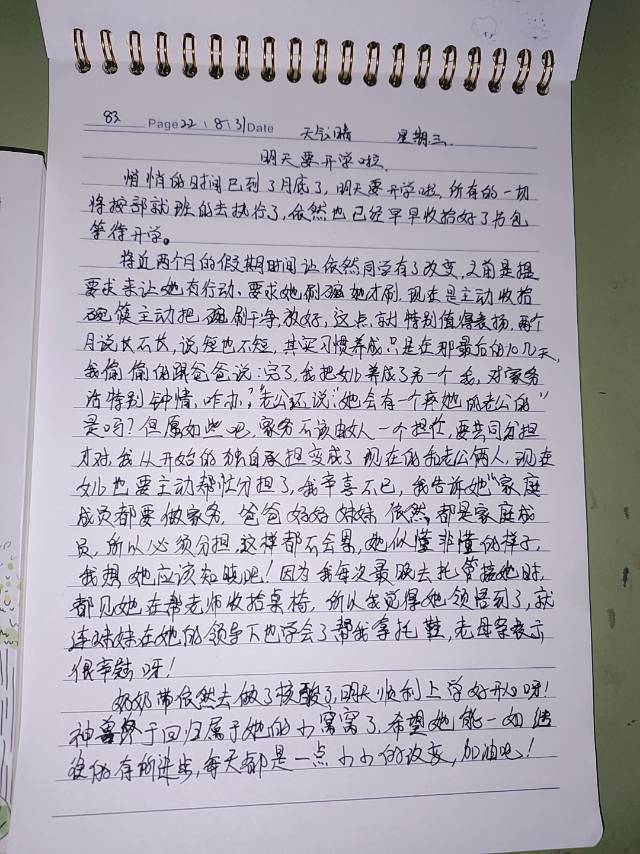 83 Page 22.8.31 Date 天气晴 星期三
明天要开学啦
悄悄的时间已到了月底了,明天要开学啦,所有的一切
将按部就班的去执行了,依然也已经早早收拾好了书包
等待开学。
将近两个月的假期时间让依然同学有了改变,之前是提
要求来让她有行动,要求她刷碗她才刷,现在是主动收拾
碗筷主动把碗刷干净放好,这点就特别值得表扬,两个
月说长不长,说短也不短,其实习惯养成只是在那最后的10几天,
我偷偷的跟爸爸说:完了,我把女儿养成了另一个我,对家务
活特别钟情,咋办?"老公还说:她会有一个疼她的老公的"
是吗?但愿如此吧,家务不该由人一个担任,要共同分担
才对,我从开始的独自承担变成了现在的和老公俩人,现在
女儿也要主动帮忙分担了,我幸喜不已,我告诉她"家庭
成员都要做家务,爸爸妈妈妹妹依然,都是家庭成
员,所以必须分担,这样都不会累,她似懂非懂的样子,
我想她应该知晓吧!因为我每次最晚去托管接她时,
都见她在帮老师收拾桌椅,所以我觉得她领悟到了,就
连妹妹在她的领导下也学会了帮我拿托鞋,老母亲表示
很幸慰呀!
奶奶带依然去做了核酸了,明天顺利上学好开心呀!
神兽终于回归属于她的小窝窝了,希望她能一如继
往的有所进步,每天都是一点小小的改变,加油吧!